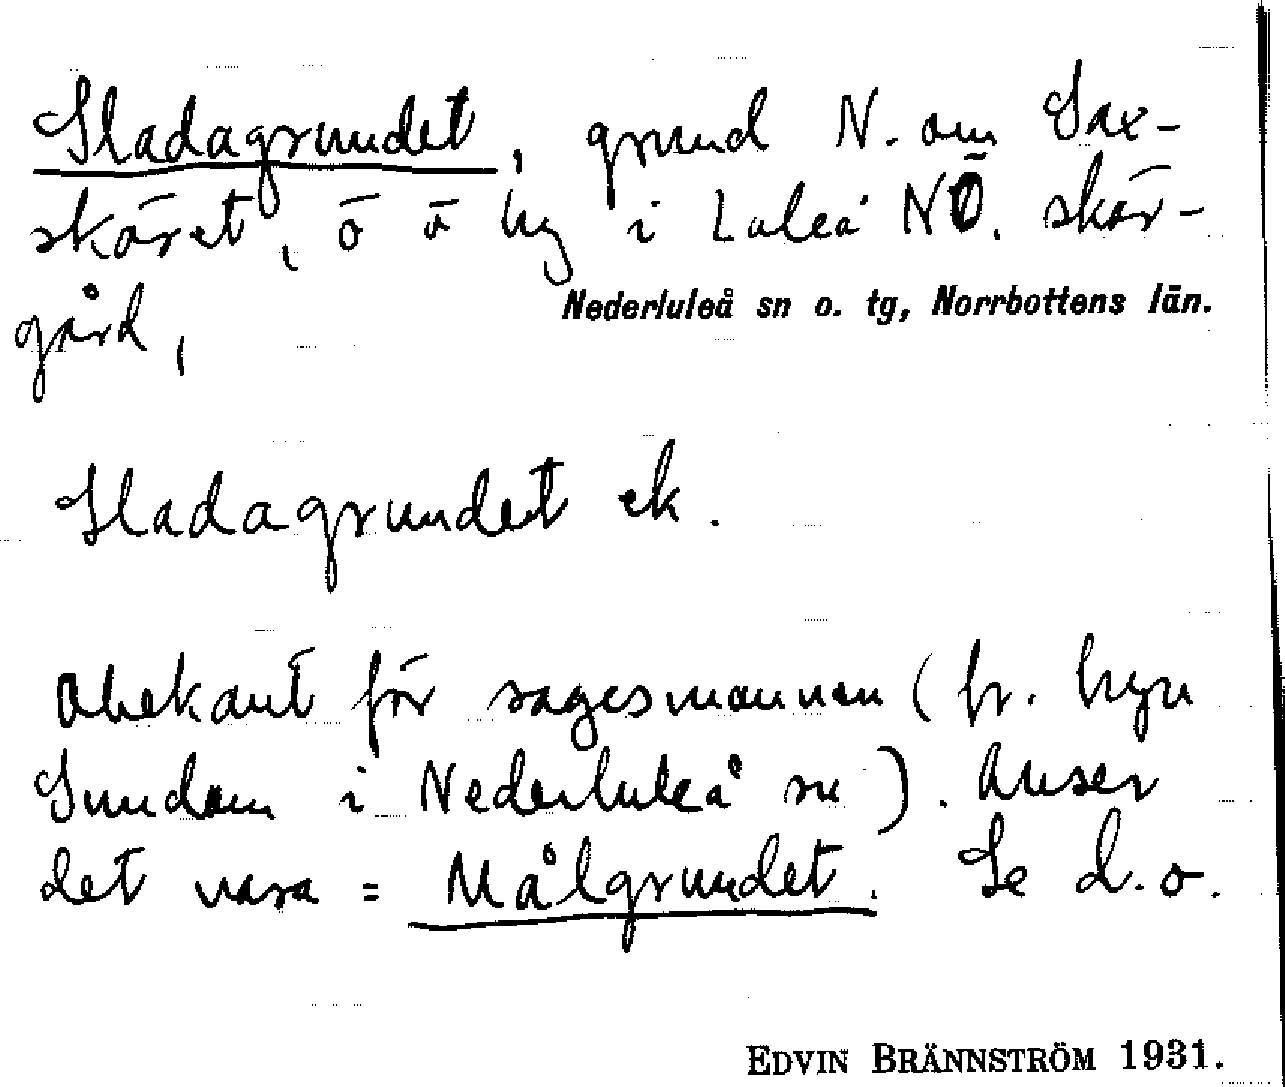 Sladagrundet, grund N. om Sax-
skäret, ö ö hg i Luleå NÖ. skär-
gård,
Nederluleå sn o. tg, Norrbottens län.
Sladagrundet ek.
Obekant för sagesmannen (fr. byn
Sundom i Nederluleå sn). Anser
det vara = Målgrundet. Se d.o.
EDVIN BRÄNNSTRÖM 1931.